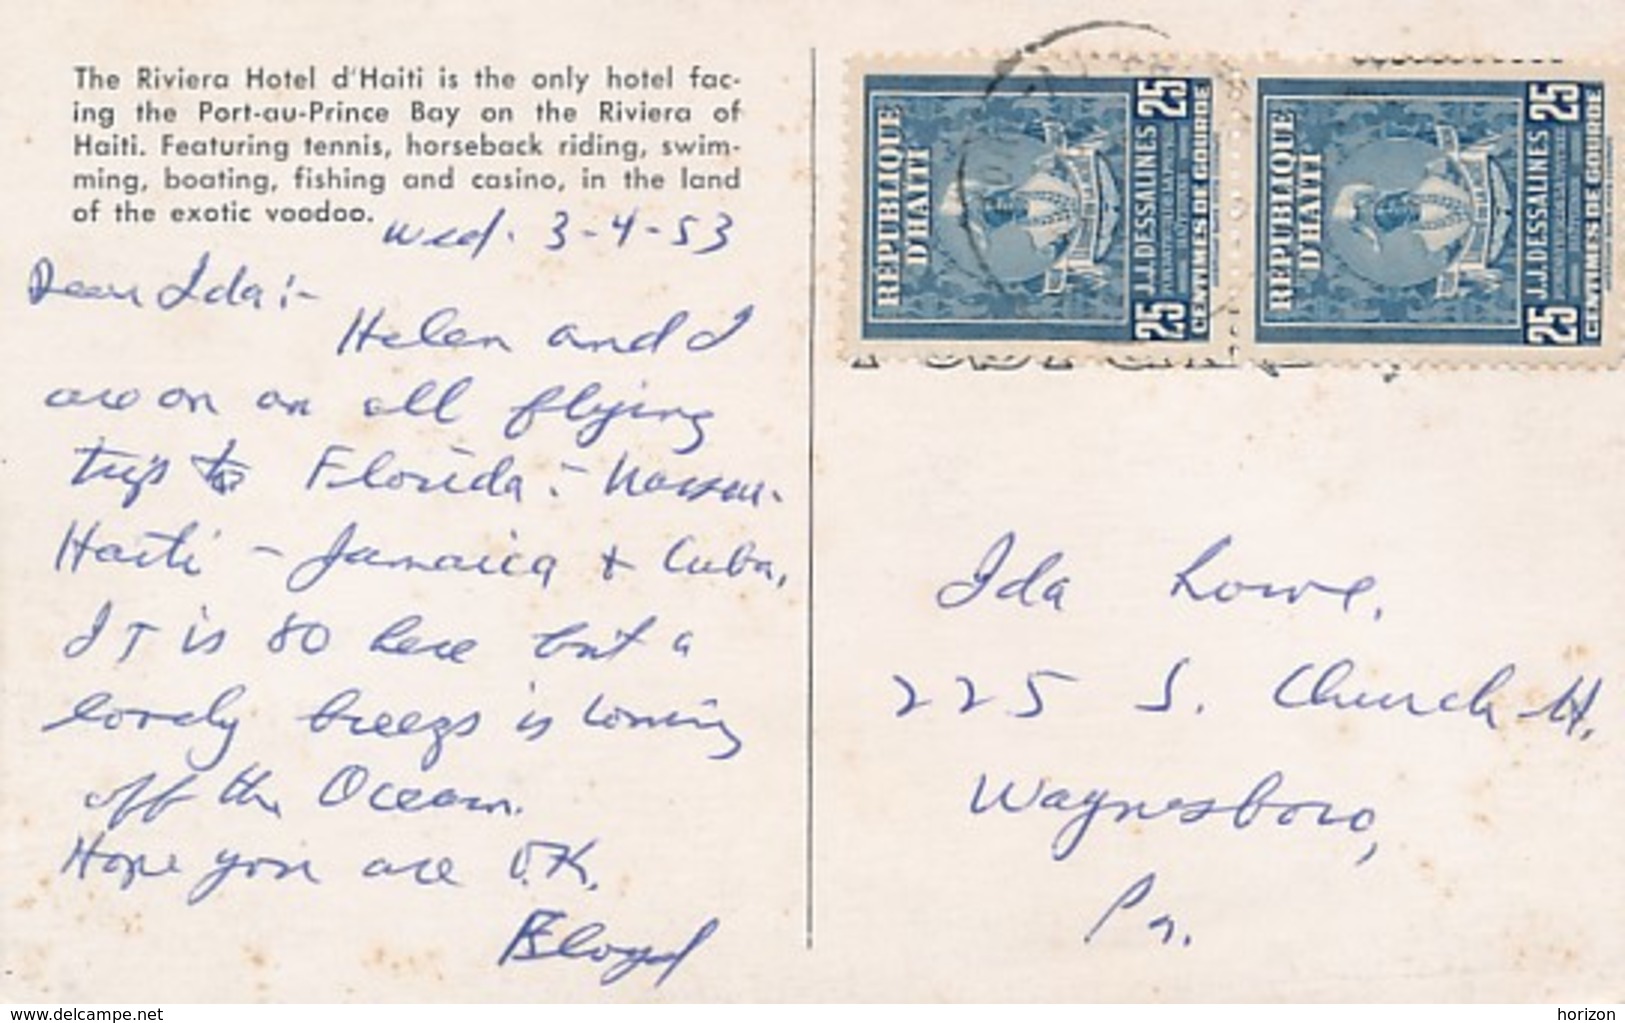 The Riviera Hotel d'Haiti is the only hotel fac-
ing the Port-au-Prince Bay on the Riviera of
Haiti. Featuring tennis, horseback riding, swim-
ming, boating, fishing and casino, in the land
of the exotic voodoo.
Wed. 3-4-53
Dear Ida:-
Helen and I
are on an all flying
trip to Florida - Nassau -
Haiti - Jamaica + Cuba.
It is 80 here but a
lovely breeze is coming
off the Ocean.
Hope you are O.K.
REPUBLIQUE
D'HAITI
25 J.J.DESSALINES 25
CENTIMES DE GOURDE
REPUBLIQUE
D'HAITI
25 J.J.DESSALINES 25
CENTIMES DE GOURDE
Ida Lowe,
225 S. Church St.
Waynesboro,
Pa.
www.delcampe.net
horizon